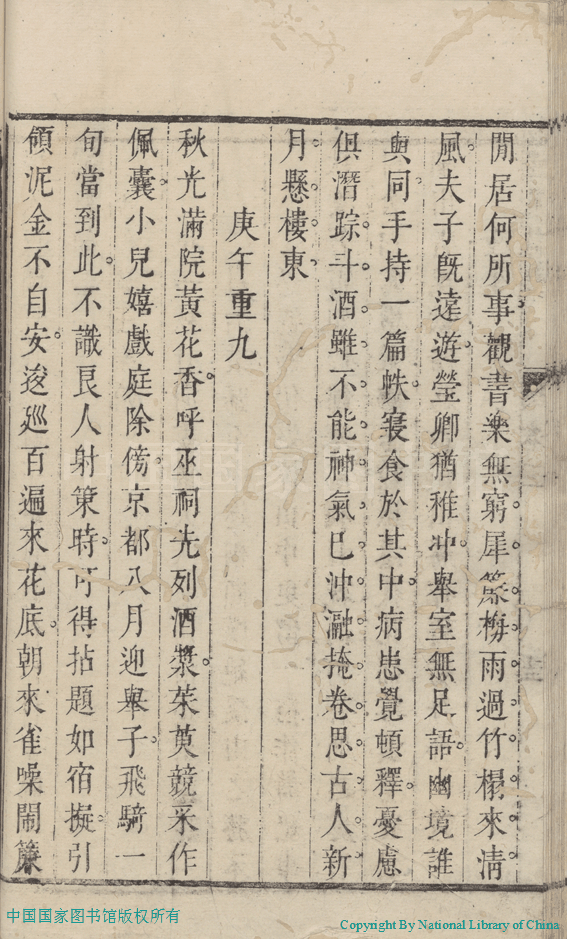 閒居何所事觀書樂無窮犀簾梅雨過竹榻來清
風夫子旣遠遊瑩卿猶稚冲舉室無足語幽境誰
與同手持一篇帙寢食於其中病患覺頓釋憂慮
俱潛踪斗酒雖不能神氣已沖瀜掩卷思古人新
月懸樓東
庚午重九
秋光滿院黃花香呼巫祠先列酒漿茱萸競采作
佩囊小兒嬉戲庭除傍京都八月迎舉子飛騎一
旬當到此不識良人射策時可得拈題如宿擬引
領泥金不自安逡廵百遍來花底朝來雀噪鬧簾
中国国家图书馆版权所有
Copyright By National Library of China